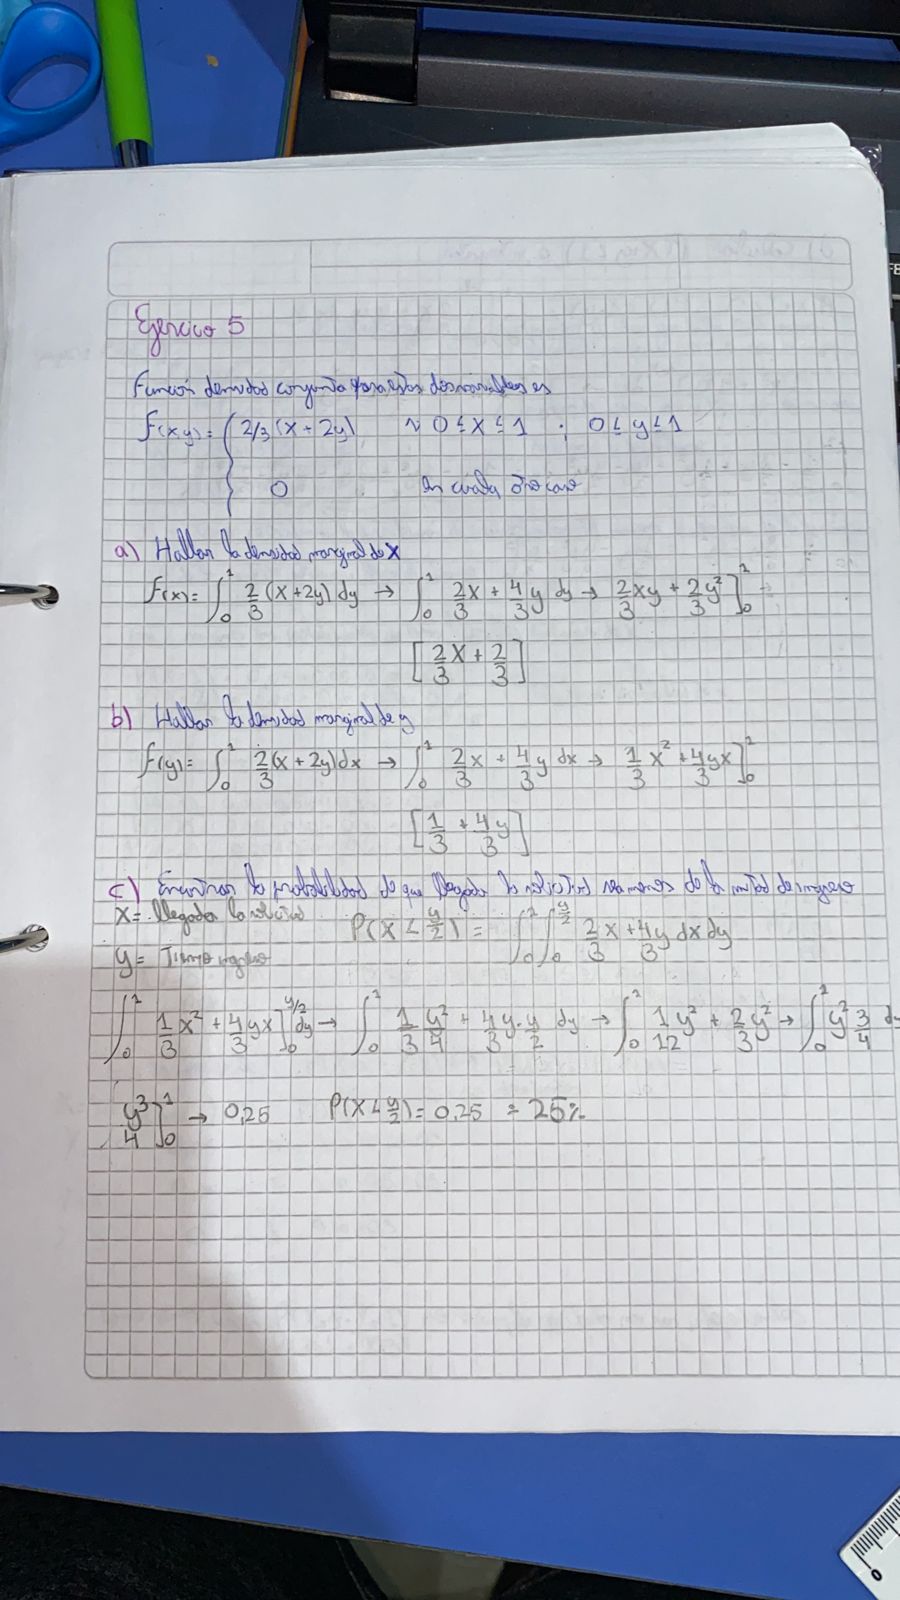 Ejercicio 5
Función densidad conjunta para estas dos variables es
f(xy) = { 2/3 (x + 2y) ~ 0 ≤ x ≤ 1 ; 0 ≤ y ≤ 1
0 en cualq otro caso
a) Hallar la densidad marginal de X
f(x) = ∫₀¹ 2/3 (x+2y) dy → ∫₀¹ 2x/3 + 4/3 y dy → 2/3 xy + 2y²/3 ]₀¹
[2/3 x + 2/3]
b) Hallar la densidad marginal de y
f(y) = ∫₀¹ 2/3 (x + 2y) dx → ∫₀¹ 2x/3 + 4/3 y dx → 1/3 x² + 4yx/3 ]₀¹
[1/3 + 4y/3]
c) Encontrar la probabilidad de que llegada la solicitud sea menos de la mitad de ingreso
x = llegada
P(X < y/2) = ∫₀¹ ∫₀^(y/2) 2/3 x + 4y/3 dx dy
y = Tiempo ingreso
∫₀¹ 1/3 x² + 4/3 yx ]₀^(y/2) dy → ∫₀¹ 1/3 y²/4 + 4/3 y · y/2 dy → ∫₀¹ 1/12 y² + 2/3 y² → ∫₀¹ y² 3/4 dy
y³/4 ]₀¹ → 0,25 P(X < y/2) = 0,25 = 25%
0